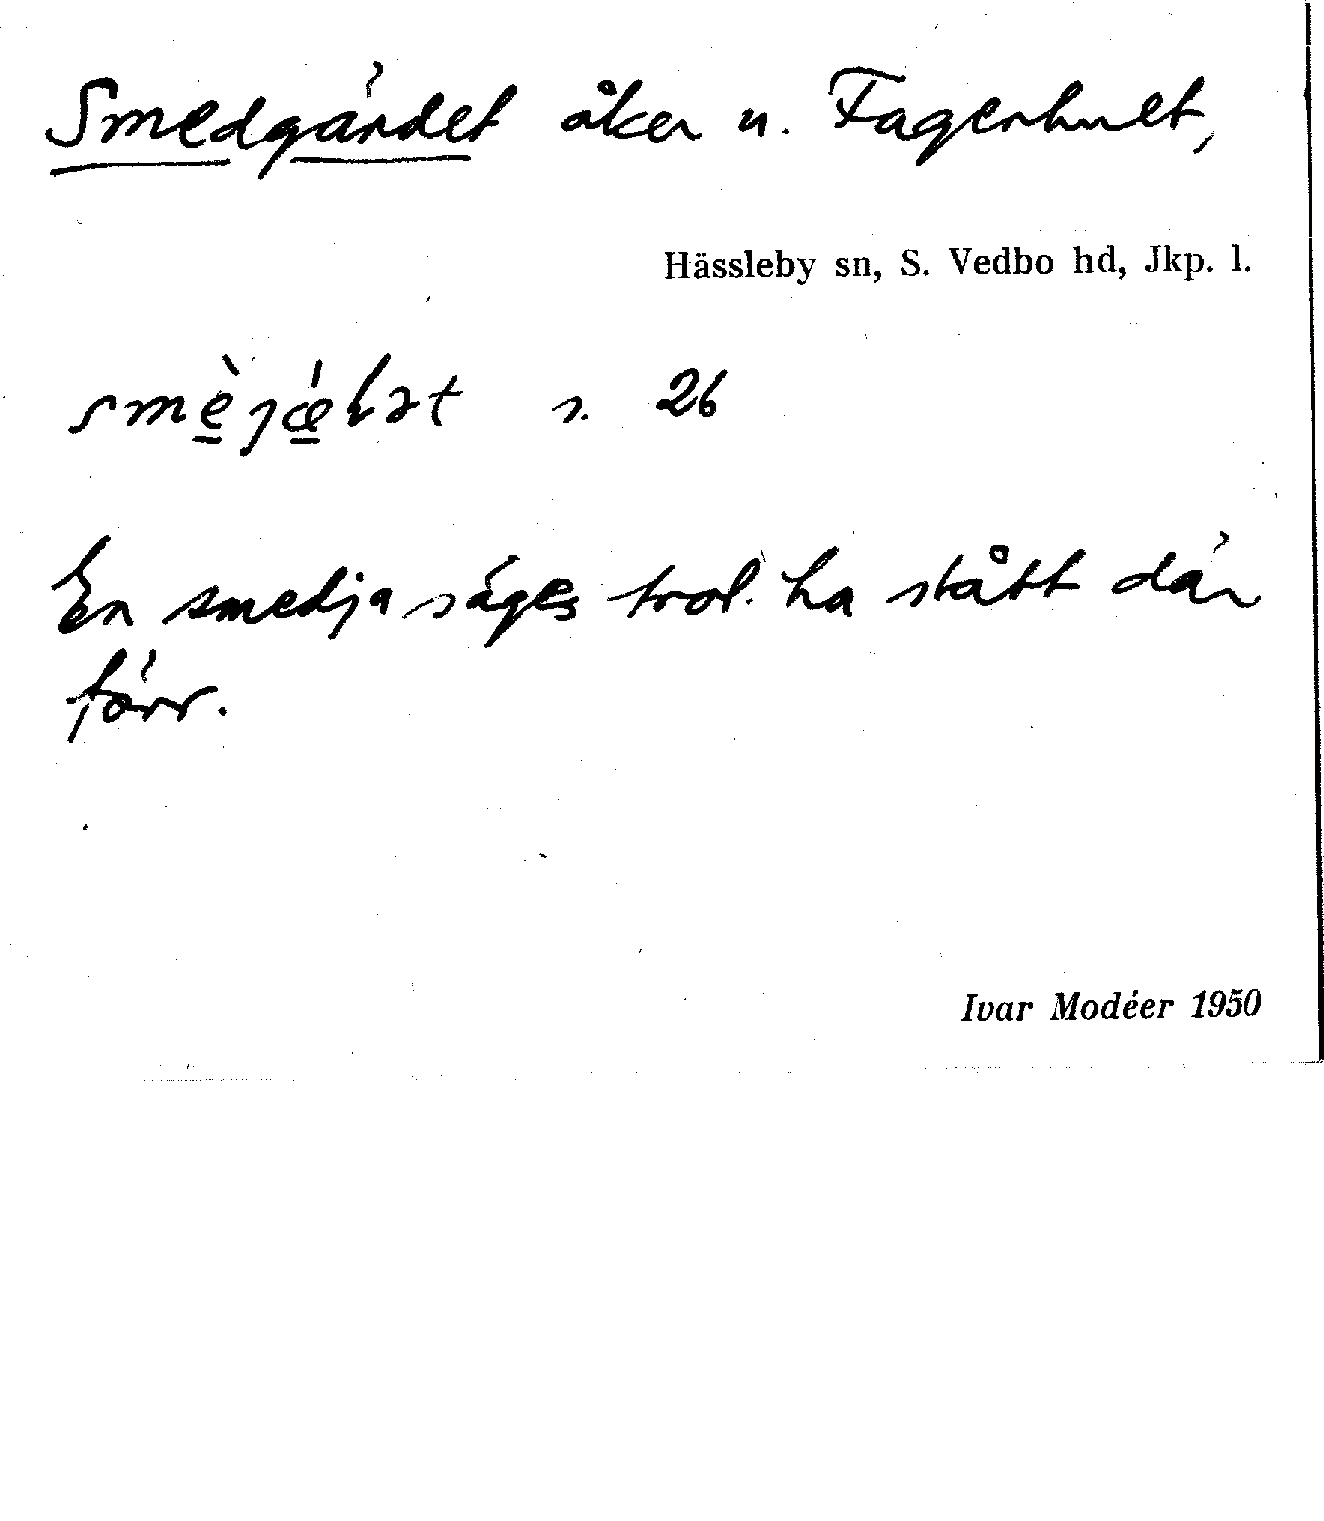 Smedgärdet åker u. Fagerhult,
Hässleby sn, S. Vedbo hd, Jkp. l.
26
En smedja säges trol. ha stått där
förr.
Ivar Modéer 1950